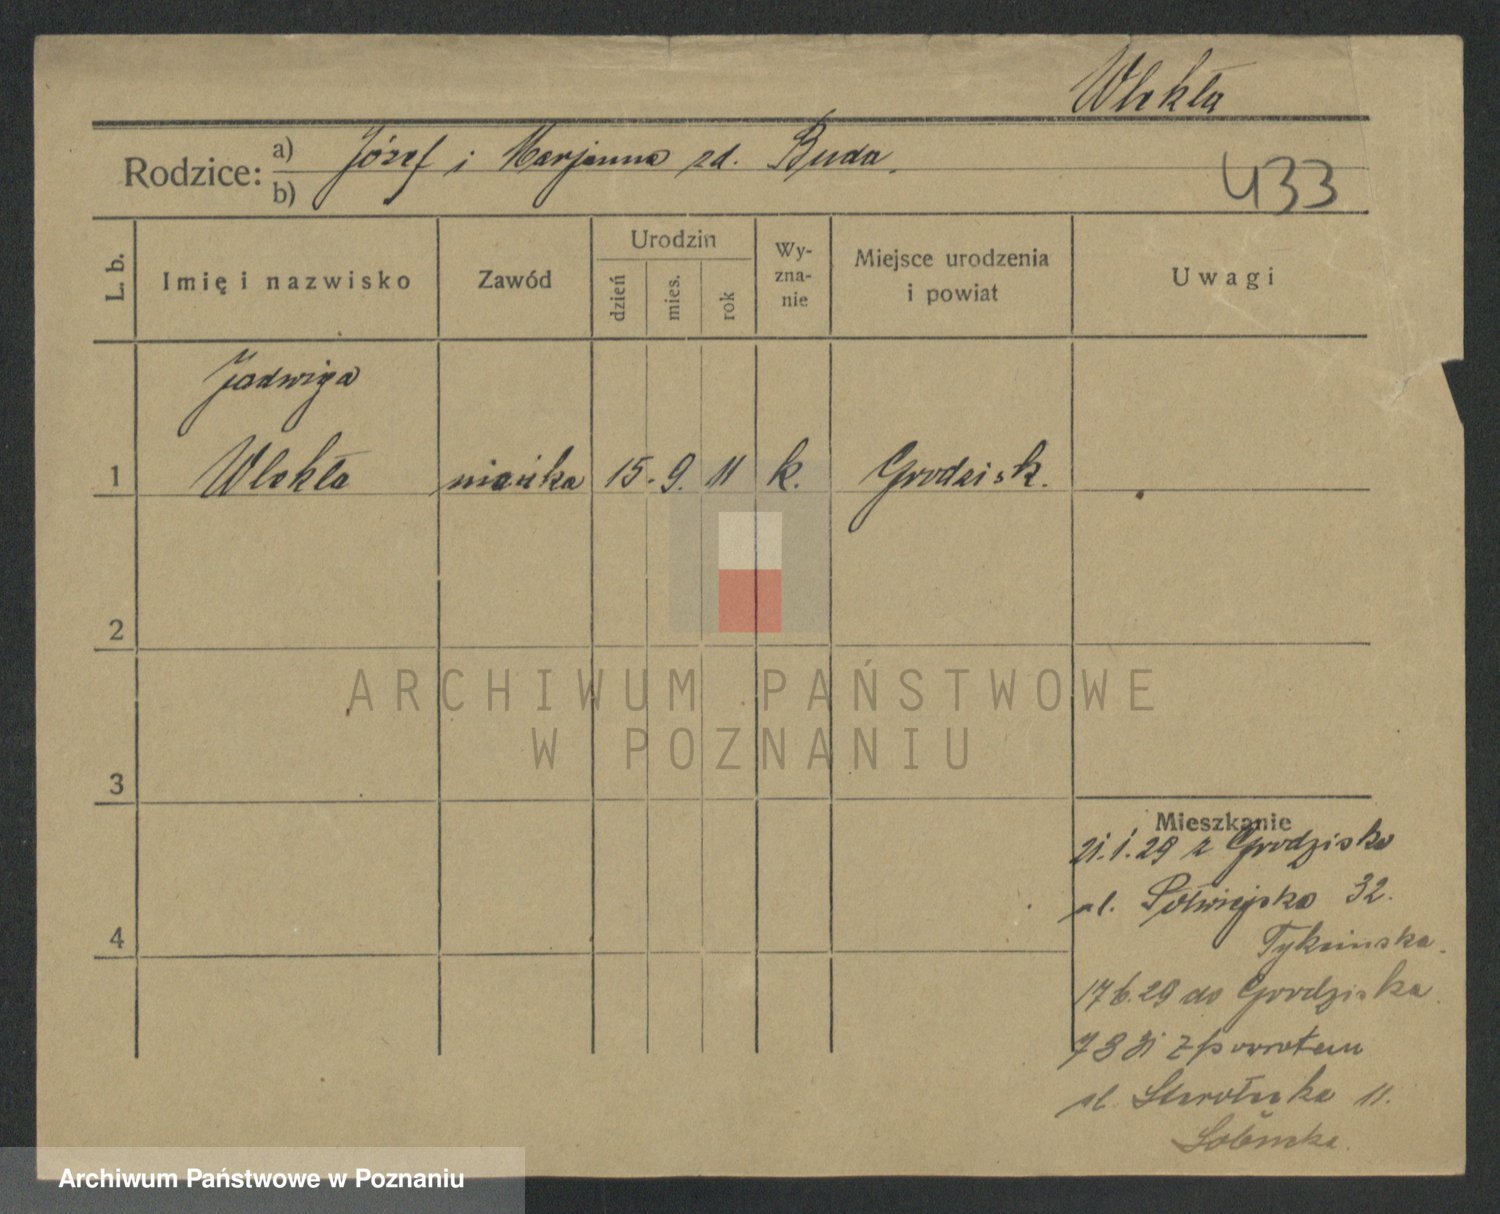 Wlekła
Rodzice: a) Józef i Marjanna zd. Buda.
b)
433
L. b.
Imię i nazwisko
Zawód
Urodzin
dzień
mies.
rok
Wy-
zna-
nie
Miejsce urodzenia
i powiat
Uwagi
Jadwiga
1 Wlekła niańka 15. 9. 11 k. Grodzisk.
2
ARCHIWUM PAŃSTWOWE
W POZNANIU
3
Mieszkanie
21.1.29 z Grodziska
ul. Półwiejska 32.
4
17 6.29 do Grodziska.
7 8 31 z powrotem
ul. Starołęcka 11.
Archiwum Państwowe w Poznaniu